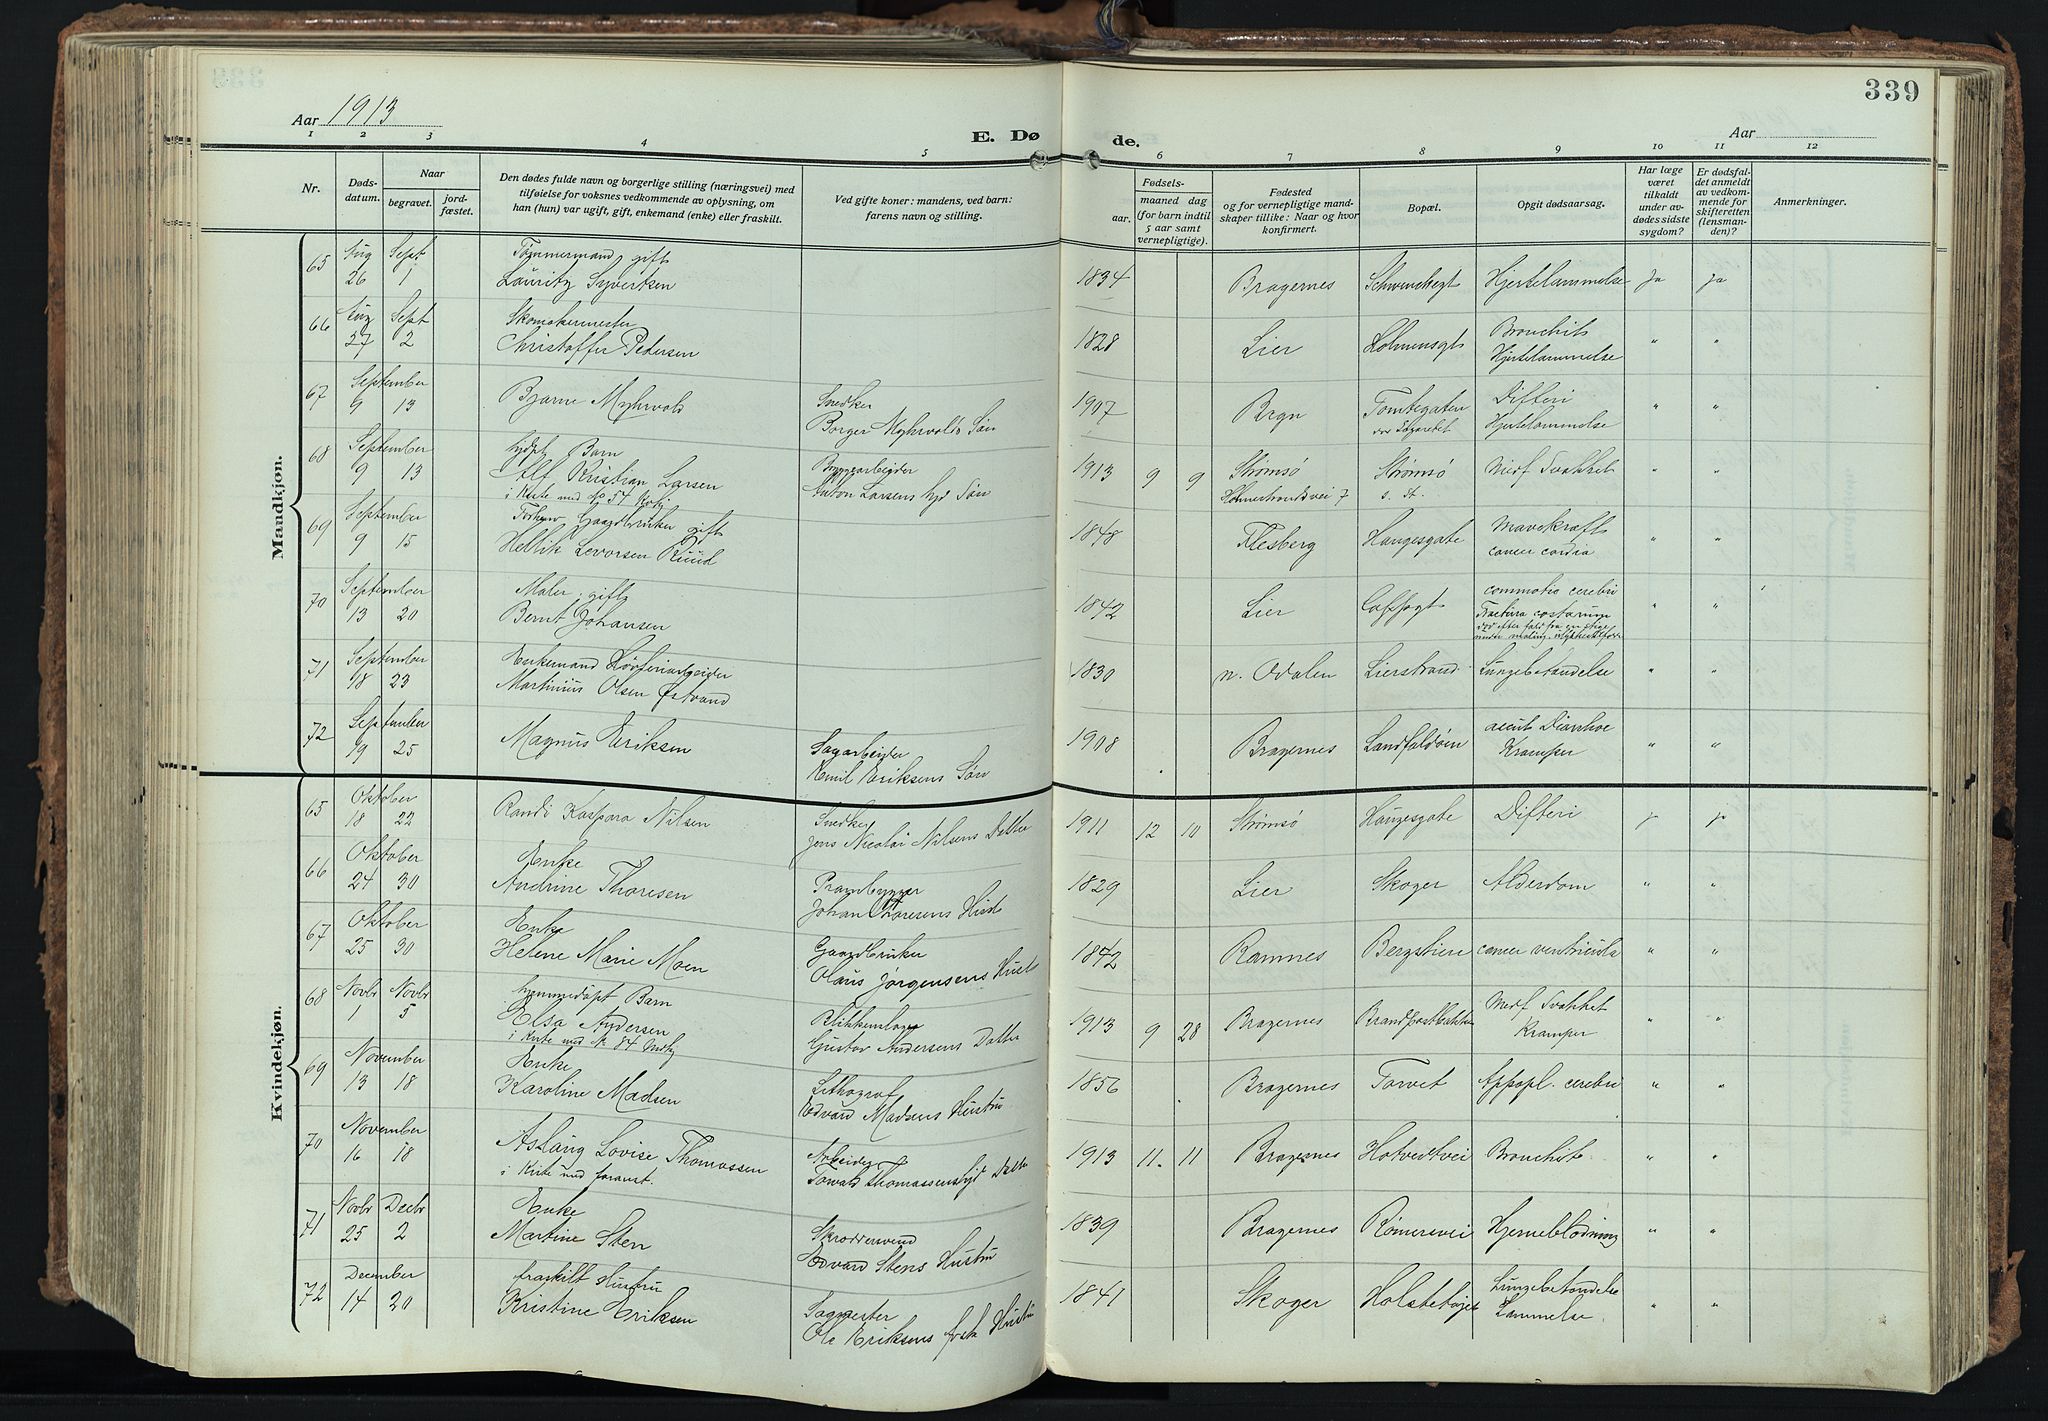 339
Aar 1913
E. Dø de.
Aar
1 2 3 4 5 6 7 8 9 10 11 12
Nr.
Dødsdatum.
Naar
begravet.
jordfæstet.
Den dødes fulde navn og borgerlige stilling (næringsvei) med
tilføielse for voksnes vedkommende av oplysning, om
han (hun) var ugift, gift, enkemand (enke) eller fraskilt.
Ved gifte koner: mandens, ved barn:
farens navn og stilling.
Fødsels-
aar.
maaned dag
(for barn indtil
5 aar samt
vernepligtige).
Fødested
og for vernepligtige mand-
skaper tillike: Naar og hvor
konfirmert.
Bopæl.
Opgit dødsaarsag.
Har læge
været
tilkaldt
under av-
dødes sidste
sygdom?
Er dødsfal-
det anmeldt
av vedkom-
mende for
skifteretten
(lensman-
den)?
Anmerkninger.
Mandkjøn.
65 Aug Sept Tømmermand, gift
26 1 Lauritz Syvertsen 1834 Bragernes Schwenchsgt Hjertelammelse Ja Ja
66 Aug Sept Skomakermester
27 2 Christoffer Pedersen 1828 Lier Holmensgt Bronchit
Hjertelammelse " "
67 September
9 13 Bjarne Myhrvold Snedker
Borger Myhrvolds Søn 1907 Brgn Tomtegaten Difteri
Hjertelammelse " "
68 September Barn
9 13 Alf Kristian Larsen Bryggearbeider
Anton Larsens Søn 1913 9 9 Strømsø Strømsø Medf Svakhet " "
i Kiste med No 54
Holmestrandsvei 7 s. st.
69 September Gaardbruker gift
9 15 Hellik Levorsen Ruud 1848 Flesberg Haugesgate Mavekræft
cancer cardia " "
70 September Maler, gift
13 20 Bernt Johansen 1842 Lier commotio cerebri
Fractura costarum
død efter fald fra en stige " "
71 September Enkemand
18 23 Martinius Olsen Østvand 1830 n. Odalen Lierstrand Lungebetændelse " "
72 September
19 25 Magnus Eriksen Sagarbeider
Emil Eriksens Søn 1908 Bragernes Landfaldøen acut Diarrhoe
Kramper " "
Kvindekjøn.
65 Oktober
18 22 Randi Kaspara Nilsen Snedker
Jens Nicolai Nilsens Datter 1911 12 10 Strømsø Haugesgate Difteri j j
66 Oktober Enke
24 30 Andrine Thoresen Prambygger
Johan Thoresens Hust 1829 Lier Skoger Alderdom " "
67 Oktober Enke
25 30 Helene Marie Moen Gaardbruker
Olaus Jørgensens Hust 1842 Ramnes Bergstien cancer ventriculi " "
68 Novbr Novbr hjemmedøpt Barn
1 5 Elsa Andersen Blikkenslager
Gustav Andersens Datter 1913 9 28 Bragernes Brandpostbakken Medf Svakhet
Kramper " "
i Kiste med N 84
69 November Enke
13 18 Karoline Madsen Lithograf
Edvard Madsens Hustru 1856 Bragernes Torvet Appopl. cerebri " "
70 November
16 18 Aslaug Lovise Thomassen Arbeider
Torvald Thomassens Datter 1913 11. 11 Bragernes Hotvedtvei Bronchit " "
71 Novbr Decbr Enke
25 2 Martine Sten Skræddersvend
Edvard Stens Hustru 1839 Bragernes Rømersvei Hjerneblødning " "
72 December fraskilt Hustru
14 20 Kristine Eriksen Sagmester
Ole Eriksens frsk Hustru 1841 Skoger Lungebetændelse
Lammelse " "